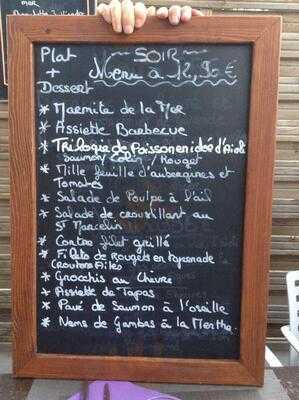 SOIR
Plat
+
Dessert
Menu à 12,90 €
* Marmite de la Mer
* Assiette Barbecue
* Trilogie de Poisson en idée d'Aïoli
Saumon, Colin, Rouget
* Mille feuille d'aubergines et
Tomates
* Salade de Poulpe à l'ail
* Salade de croustillant au
St Marcelin
* Contre filet grillé
* Filets de Rougets en tapenade
* Gnocchis au Chèvre
* Assiette de Tapas
* Pavé de Saumon à l'oseille
* Nems de Gambas à la Menthe